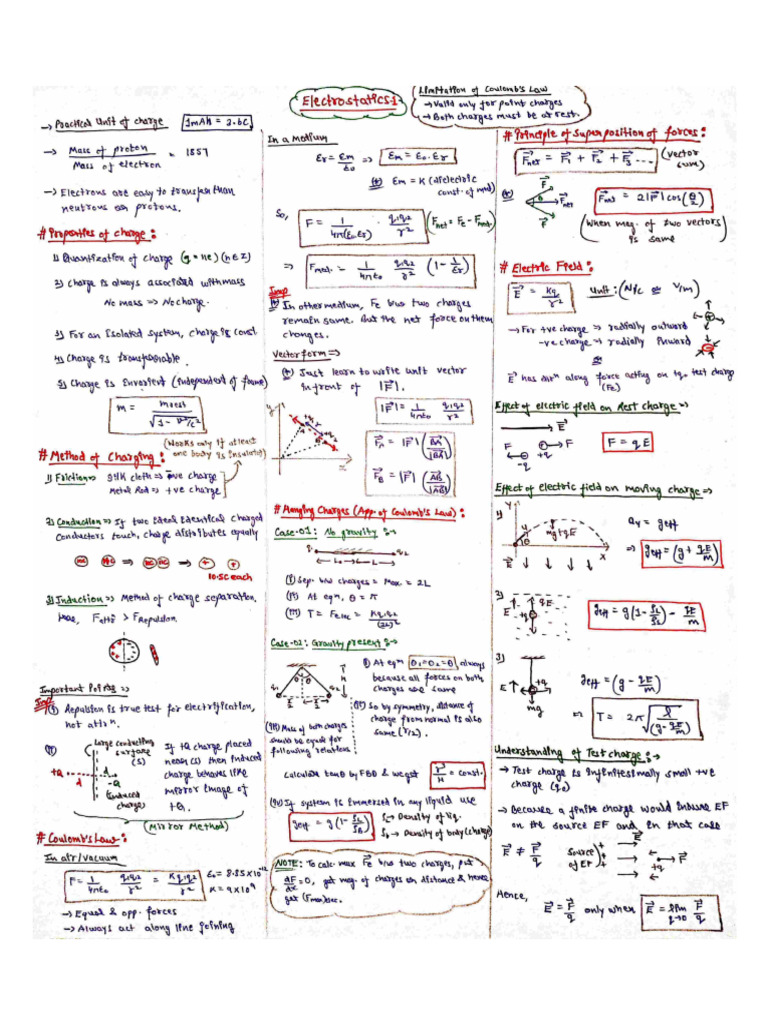 Electrostatics-1
Limitation of Coulomb's Law
→ Valid only for point charges
→ Both charges must be at rest.
→ Practical Unit of charge 1mAH = 3.6C
→ Mass of proton / Mass of electron = 1837
→ Electrons are easy to transfer than
neutrons or protons.
# Properties of charge:
1) Quantization of charge (q = ne) (n∈Z)
2) Charge is always associated with mass
No mass => No charge.
3) For an isolated system, charge is const
4) Charge is transferable.
5) Charge is Invarient (independent of frame)
m = mrest / √(1 - v²/c²)
# Method of Charging:
(Works only if atleast
one body is Insulator)
1) Friction => Silk cloth => -ve charge
Metal Rod => +ve charge
2) Conduction => If two Ideal Identical charged
Conductors touch, charge distributes equally
10.5C each
3) Induction => Method of charge separation.
Here, Fattⁿ > FRepulsion.
Important Points =>
Imp
(i) Repulsion is true test for electrification,
not attrⁿ.
(ii)
Large conducting
surface
(S)
+Q
d
d
-Q
(induced
charge)
If +Q charge placed
near (S) then induced
charge behaves like
mirror image of
+Q.
(Mirror Method)
# Coulomb's Law:
In air/vacuum
F = 1/4πε₀ q₁q₂/r² = Kq₁q₂/r²
ε₀ = 8.85×10⁻¹²
K = 9×10⁹
→ Equal & opp. forces
→ Always act along line joining
In a medium
εr = εm/ε₀ => εm = ε₀.εr
(*) εm = K (dielectric
const. of med)
So,
F = 1/4π(ε₀.εr) q₁q₂/r² (Fnet = FE - Fmed)
=> Fmed. = 1/4πε₀ q₁q₂/r² (1 - 1/εr)
Imp
(*) In other medium, Fe b/w two charges
remain same. But the net force on them
changes.
Vector form =>
(*) Just learn to write unit vector
in front of |F⃗|.
y
x
|F⃗| = 1/4πε₀ q₁q₂/r²
F⃗A = |F⃗| (BA⃗/|BA⃗|)
F⃗B = |F⃗| (AB⃗/|AB⃗|)
# Hanging Charges (App. of Coulomb's Law):
Case-01: No gravity :→
q₁ L L q₂
(i) Sepⁿ b/w charges = Max = 2L
(ii) At eqⁿ, θ = π
(iii) T = Felec = Kq₁q₂/(2L)²
Case-02: Gravity present :→
(i) At eqⁿ θ₁=θ₂=θ always
because all forces on both
charges are same
(ii) So by symmetry, distance of
charge from normal is also
same (r/2).
(iii) Mass of both charges
should be equal for
following relations
Calculate tanθ by FBD & we get r³/H = const.
(iv) If system is immersed in any liquid use
geff = g(1 - ρL/ρB)
ρL → Density of liq.
ρB → Density of body (charge)
NOTE: To calc. max F⃗e b/w two charges, put
dF/dx = 0, get mag. of charges or distance & hence
get (Fmax)elec.
# Principle of Superposition of forces:
F⃗net = F⃗₁ + F⃗₂ + F⃗₃ .... (vector
sum)
(*)
F⃗
θ
F⃗net
F⃗
F⃗net = 2|F⃗|cos(θ/2)
(When mag. of two vectors
is same)
# Electric Field:
E⃗ = Kq/r² Unit: (N/C or V/m)
→ For +ve charge => radially outward
-ve charge => radially inward
or
E⃗ has dirⁿ along force acting on +q₀ test charge
(Fe)
Effect of electric field on Rest charge =>
E⃗
F -q +q F
F = qE
Effect of electric field on moving charge =>
1)
Y
u
θ
mg+qE
X
E⃗
ay = geff
=> geff = (g + qE/m)
2)
E
qE
+q
geff = g(1 - ρL/ρB) - qE/m
3)
E
+q
mg
geff = (g - qE/m)
=> T = 2π √(l/(g - qE/m))
Understanding of Test charge:→
→ Test charge is infinitesimally small +ve
charge (q₀)
→ Because a finite charge would induce EF
on the source EF and in that case
E⃗ ≠ F⃗/q
Source
of EF
E⃗
+q
F
Hence,
E⃗ = F⃗/q only when E⃗ = lim q→0 F⃗/q